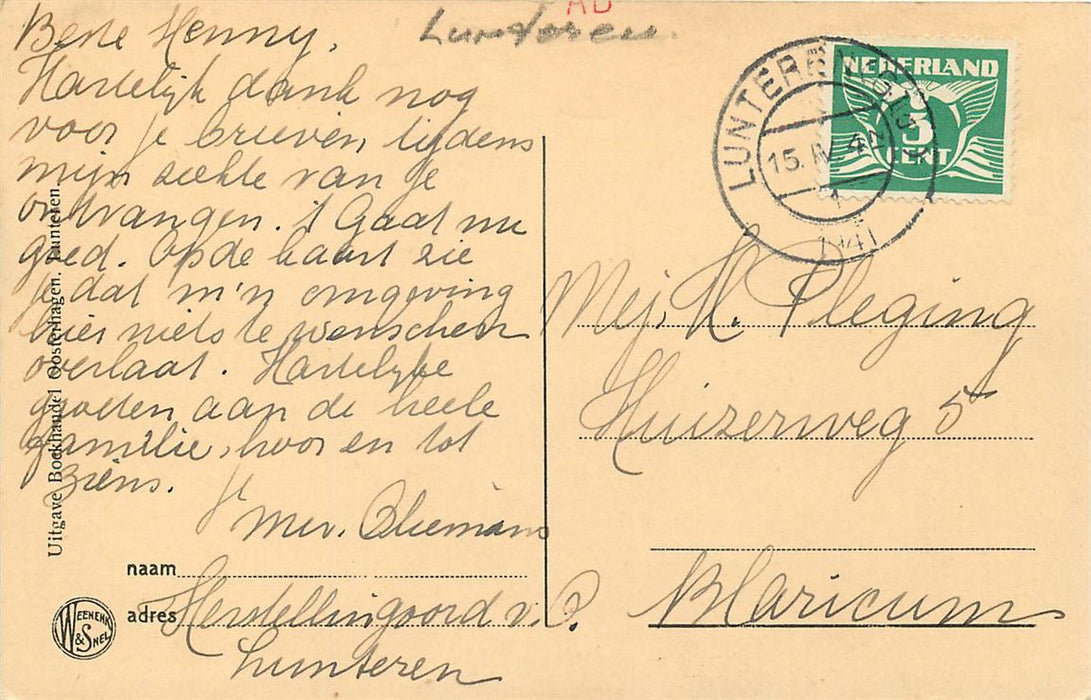 Beste Henny,
Hartelijk dank nog
voor je brieven tijdens
mijn ziekte van je
ontvangen. 't Gaat nu
goed. Op de kaart zie
je dat m'n omgeving
hier niets te wenschen
overlaat. Hartelijke
groeten aan de heele
familie, hoor en tot
ziens.
je
Mev. Bliemans
naam
adres Herstellingsoord v. O.
Lunteren
Uitgave Boekhandel Oosterhagen. Lunteren.
WEENENK & SNEL
AB
Lunteren.
LUNTEREN
15. IV 42
1
1941
NEDERLAND
3
CENT
Mej. H. Pleging
Huizerweg 5
Blaricum